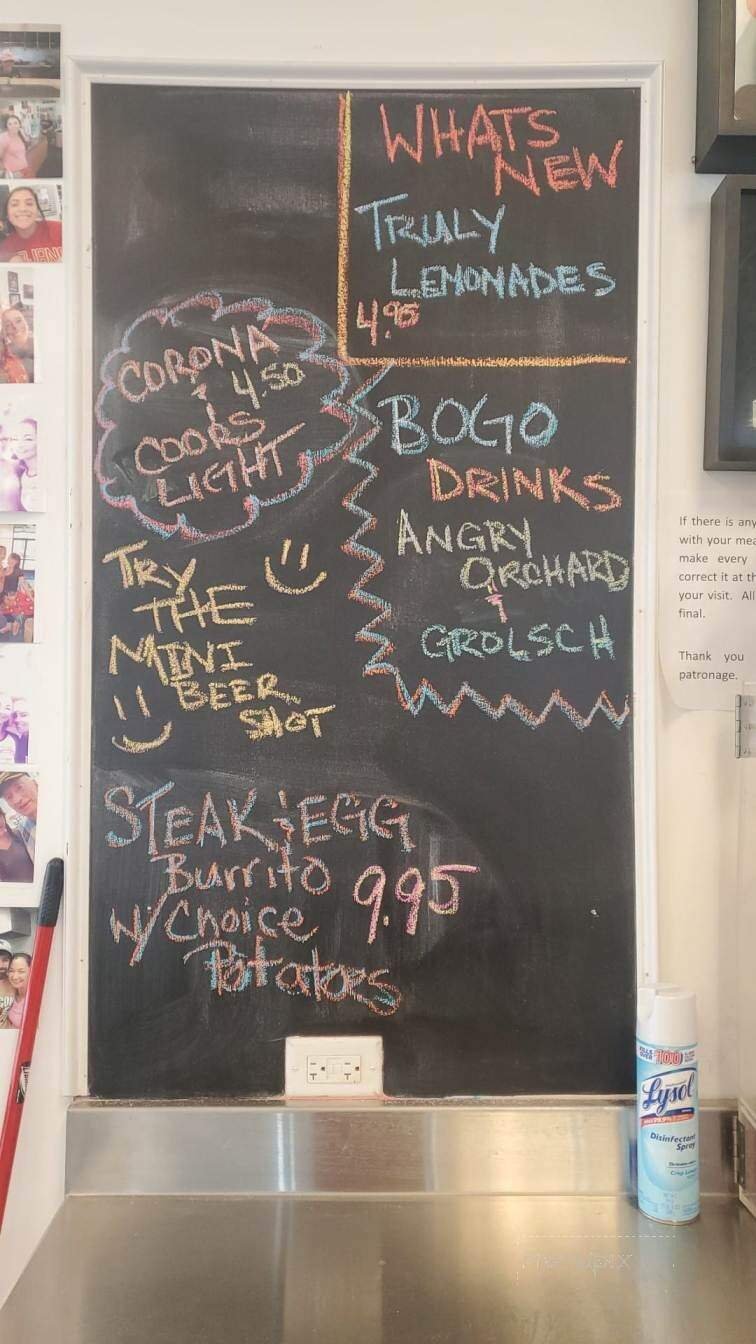 WHATS
NEW
TRULY
LEMONADES
4.95
CORONA
&
4.50
COORS
LIGHT
BOGO
DRINKS
ANGRY
ORCHARD
&
GROLSCH
TRY
THE
MINI
BEER
SHOT
STEAK & EGG
Burrito
9.95
W/ Choice
Potatoes
If there is any
with your mea
make every
correct it at th
your visit. All
final.
Thank you
patronage.
KILLS
OVER
100
Lysol
Disinfectant
Spray